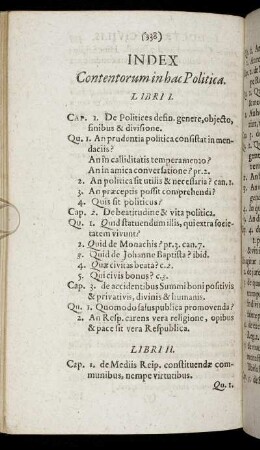 (338)
INDEX
Contentorum in hac Politica.
LIBRI I.
Cap. 1. De Politices defin. genere, objecto,
finibus & divisione.
Qu. 1. An prudentia politica consistat in men-
daciis?
An in calliditatis temperamento?
An in amica conversatione? pr. 2.
2. An politica sit utilis & necessaria? can. 2.
3. An præceptis possit comprehendi?
4. Quis sit politicus?
Cap. 2. De beatitudine & vita politica.
Qu. 1. Quid statuendum illis, qui extra socie-
tatem vivunt?
2. Quid de Monachis? pr. 3. can. 7.
3. Quid de Johanne Baptista? ibid.
4. Quæ civitas beata? c. 2.
5. Qui civis bonus? c. 3.
Cap. 3. de accidentibus Summi boni positivis
& privativis, divinis & humanis.
Qu. 1. Quomodo salus publica promovenda?
2. An Resp. carens vera religione, opibus
& pace sit vera Respublica.
LIBRI II.
Cap. 1. de Mediis Reip. constituendæ com-
munibus, nempe virtutibus.
Qu. 1.